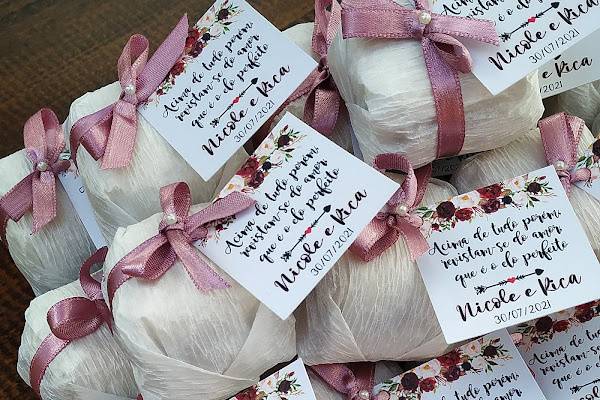 revistam-se do amor
que é o do perfeito
Nicole e Rica
30/07/2021
e Rica
Acima de tudo porém,
revistam-se do amor
que é o do perfeito
Nicole e Rica
30/07/2021
Acima de tudo porém,
revistam-se do amor
que é o do perfeito
Nicole e Rica
30/07/2021
Acima de tudo porém,
revistam-se do amor
que é o do perfeito
Nicole e Rica
30/07/2021
Acima de tudo porém,
Acima de tudo porém,